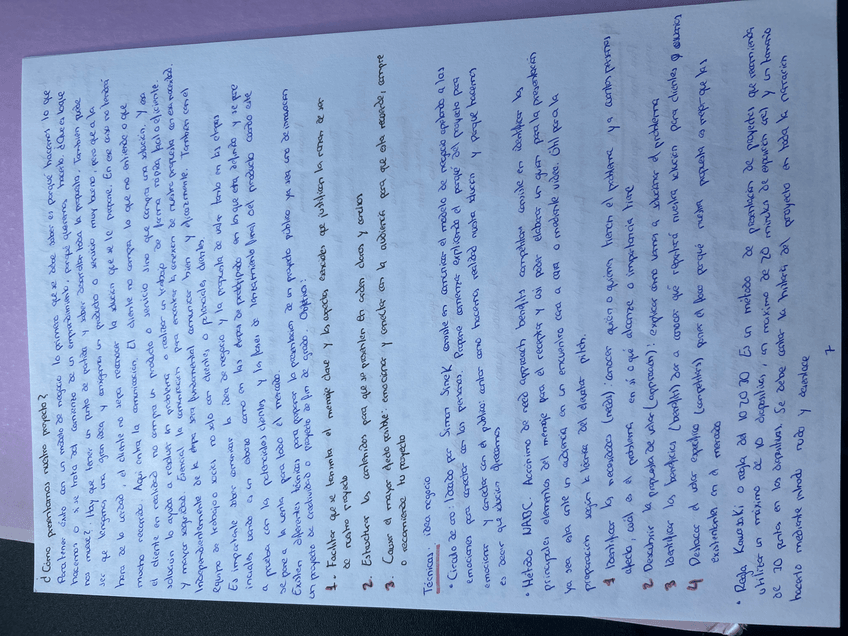 ¿Como presentamos nuestro proyecto?
Para tener éxito con un modelo de negocio lo primero que se debe saber es porqué hacemos lo que
hacemos o si se trata del comienzo de un emprendimiento, porqué queremos hacerlo. ¿Qué es lo que
nos mueve? Hay que tener un punto de partida y saber desarrollar toda la propuesta. También puede
ser que tengamos una gran idea y consigamos un producto o servicio muy bueno, pero que a la
hora de la verdad, el cliente no sepa reconocer la solución que se le propone. En ese caso no tendrá
mucho recorrido. Aquí entra la comunicación. El cliente no compra lo que no entiende o que
el cliente en realidad no compra un producto o servicio sino que compra una solución, y esa
solución lo ayuda a resolver un problema o realizar un trabajo de forma rápida, fácil o eficiente
y mayor seguridad. Esencial la comunicación para enseñar la conexión de nuestra propuesta en ese modelo.
Independientemente de la etapa será fundamental comunicar bien y eficazmente. También con el
equipo de trabajo o socios no solo con clientes o potenciales clientes
Es importante saber comunicar la idea de negocio y la propuesta de valor tanto en las etapas
iniciales cuando es un esbozo como en las etapas de prototipado en la que esta definido y se pone
a prueba con los potenciales clientes y la fases de lanzamiento final del producto cuando este
se pone a la venta para todo el mercado.
Existen diferentes técnicas para preparar la presentación de un proyecto público ya sea uno de innovación
un proyecto de investigación o proyecto de fin de grado. Objetivos:
1. Facilitar que se transmita el mensaje clave y los aspectos esenciales que justifican la razon de ser
de nuestro proyecto
2. Estructurar los contenidos para que se presenten en orden claros y concisos
3. Causar el mayor efecto posible: emocionar y conectar con la audiencia para que esta recuerde, compre
o recomiende tu proyecto
Técnicas: idea negocio
• Circulo de oro: Ideado por Simon Sinek consiste en comunicar el modelo de negocio apelando a las
emociones para conectar con las personas. Propone comenzar explicando el porque del proyecto para
emocionar y conectar con el publico, contar como hacemos realidad nuestra solucion y porque hacemos
es decir que solucion ofrecemos
• Método NABC. Acrónimo de need approach benefits competitors consiste en identificar los
principales elementos del mensaje para el receptor y así poder elaborar un guion para la presentación
ya sea esta ante un audiencia en un encuentro cara a cara o mediante video. Útil para la
preparacion según la técnica del elevator pitch.
1 Identificar las necesidades (needs): conocer quién o quienes tienen el problema y a cuantas personas
afecta, cuál es el problema en sí o qué alcance o importancia tiene
2 Descubrir la propuesta de valor (approach): explicar como vamos a solucionar el problema
3 Identificar los beneficios (benefits) dar a conocer qué reportará nuestra solución para clientes y usuarios
4 Destacar el valor especifico (competitors) poner el foco porqué nuestra propuesta es mejor que las
existentes en el mercado
• Regla Kawasaki o regla del 10 20 30 Es un metodo de presentación de proyectos que recomienda
utilizar un máximo de 10 diapositivas, un maximo de 20 minutos de exposicion oral y un tamaño
de 30 puntos en las diapositivas. Se debe contar la historia del proyecto en toda la narración
hacerlo mediante introd. nudo y desenlace
7